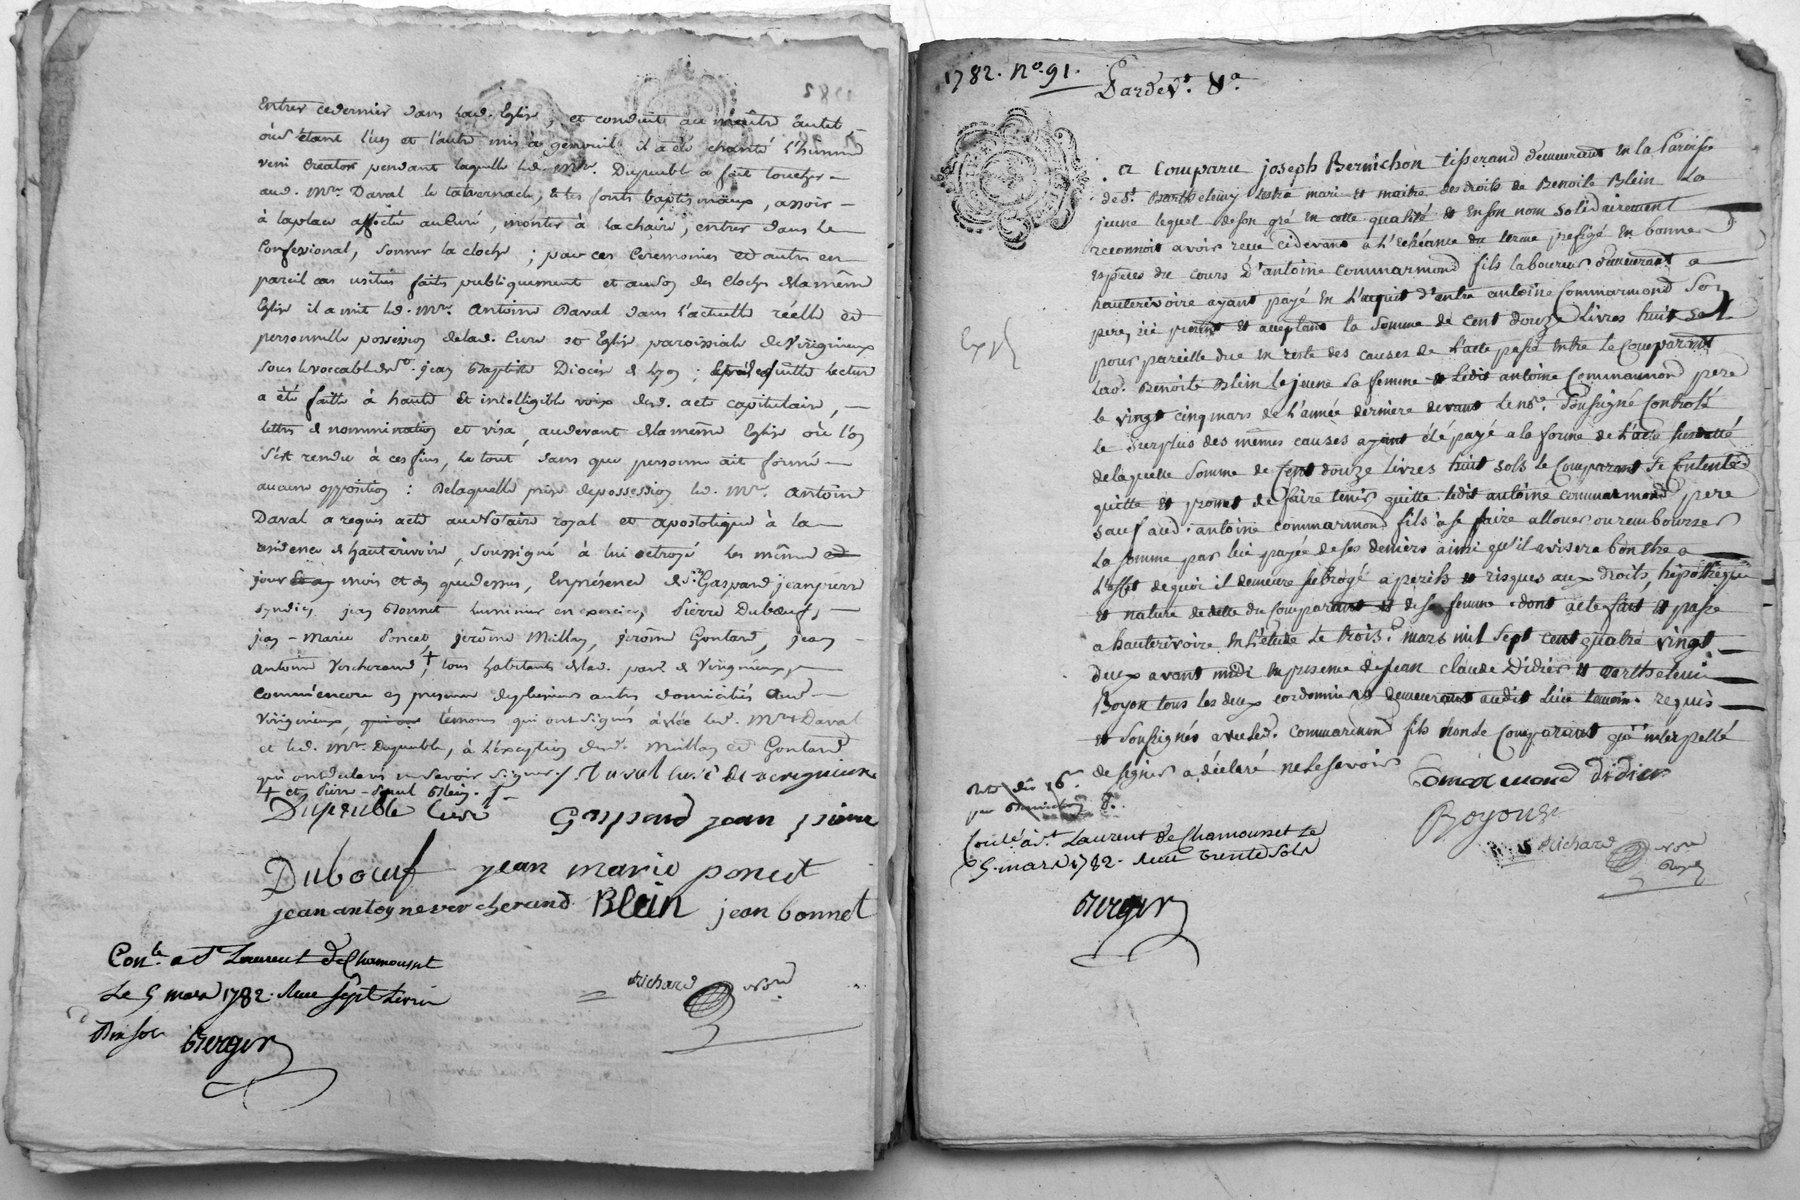 Entrer ce dernier dans lad. Eglise, et conduit au maître autel
où s'étant l'un et l'autre mis à genouil il a été chanté l'himne
veni creator pendant laquelle led. Mre. Dupeuble a fait toucher
aud. Mre. Daval le tabernacle, & les fonts baptismaux, assoir
à la place affectée au curé, monter à la chaire, entrer dans le
Confessional, sonner la cloche ; par ces Ceremonies et autres en
pareil cas usitées faits publiquement et au son des cloches de la même
Eglise il a mit led. Mre. Antoine Daval dans l'actuelle réelle et
personnelle possession de lad. Cure et Eglise paroissiale de Virigneux
sous le vocable de St. jean Baptiste Diocèse de Lyon ; lecture
a été faitte à haute et intelligible voix dud. acte capitulaire,
lettres de nommination et visa, au devant de la même Eglise où l'on
s'est rendu à ces fins, le tout sans que personne ait formé
aucune opposition : De laquelle prise de possession led. Mre. Antoine
Daval a requis acte au Notaire royal et apostolique à la
résidence de hauterivoire, soussigné à lui octroyé les même
jour mois et an que dessus, En présence de Sr. Gaspard jean pierre
syndic, jean Bonnet luminier en exercice, Pierre Dubœuf,
jean-Marie Poncet, jerôme Millon, jerôme Gontard, jean
antoine Vercherand, + tous habitants de lad. parsse de Virigneux,
comm'encore en presence de plusieurs autres domiciliés aud.
Virigneux, témoins qui ont signés avec led. Mre Daval
et led. Mre. Dupeuble, à l'exception desd. Millon et Gontard
qui ont déclaré ne savoir signer / Daval curé de virigneux
+ et Pierre-Paul Blein. /
Dupeuble Curé Gaspard jean pierre
Duboeuf jean marie poncet
jean antoyne vercherand Blein jean bonnet
Conlé. a St Laurent de Chamousset
Le 5 mars 1782. Reçu sept livres
Dix sols Berger
Richard Nore
1782. No. 91.
Pardevt. &a.
a Comparu joseph Bernichon tisserand demeurant en la Paroisse
de St. Barthelemy Lestra mari et maitre des droits de Benoite Blein La
jeune lequel de son gré en cette qualité et en son nom solidairement
reconnoit avoir reçu cidevant a l'echéance du terme prefigé en bonnes
espèces du cours d'antoine Commarmond fils laboureur demeurant a
hauterivoire ayant payé en l'acquit d'autre antoine Commarmond son
pere, ici present et acceptant la somme de cent douze Livres huit sols
pour pareille due en reste des causes de l'acte passé entre le Comparant
Lad. Benoite Blein le jeune sa femme et ledit antoine Commarmond pere
le vingt cinq mars de l'année derniere devant le nore. soussigné Controlé
le surplus des mêmes causes ayant été payé a la forme de l'acte susdatté
de laquelle somme de Cent douze Livres huit sols le Comparant se contente
quitte et promet de faire tenir quitte ledit antoine commarmond pere
sauf aud. antoine commarmond fils a se faire allouer ou rembourser
La somme par lui payée de ses deniers ainsi qu'il avisera bon être a
L'effet de quoi il demeure subrogé a perils et risques aux droits, hipotheque
et nature de dette du Comparant et de sa femme. dont acte fait et passé
a hauterivoire en l'étude Le trois. mars mil sept cent quatre vingt
deux avant midi en presence de Jean Claude Didier et Barthelemi
Boyon tous les deux cordonniers demeurant audit lieu temoins requis
et soussignés avec led. Commarmond fils non le Comparant qui interpellé
de signer a déclaré ne le sçavoir
Comarmond didier
Boyon
Richard Nore
Royal
Exp.
Conlé. à St. Laurent de Chamousset Le
5. mars 1782. Reçu trente sols
Berger